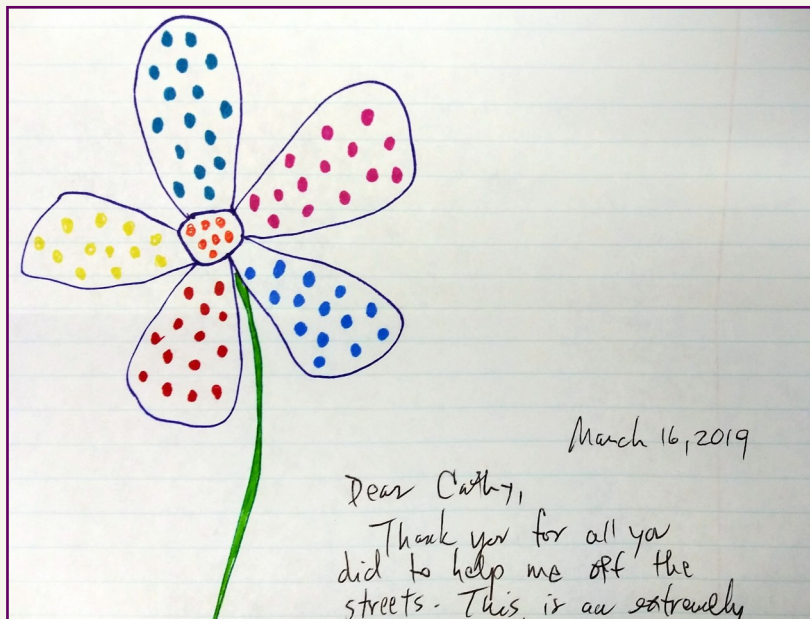 March 16, 2019
Dear Cathy,
Thank you for all you
did to help me off the
streets. This is an extremely